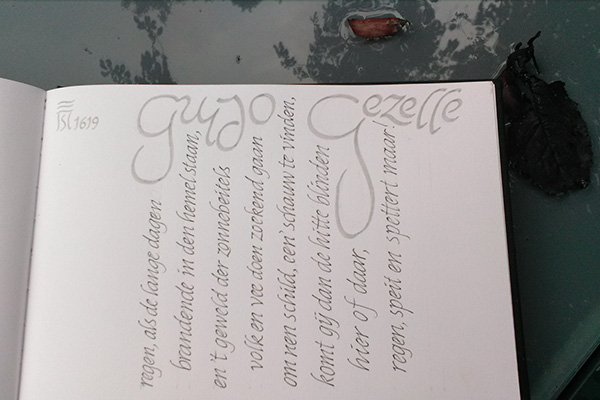 1619
Guido Gezelle
regen, als de lange dagen
brandende in den hemel staan,
en 't geweld der zonnebeitels
volk en vee doen zoekend gaan
om nen schild, een' schauw te vinden,
komt gij dan de hitte blinden
hier of daar,
regen, speit en spettert maar!